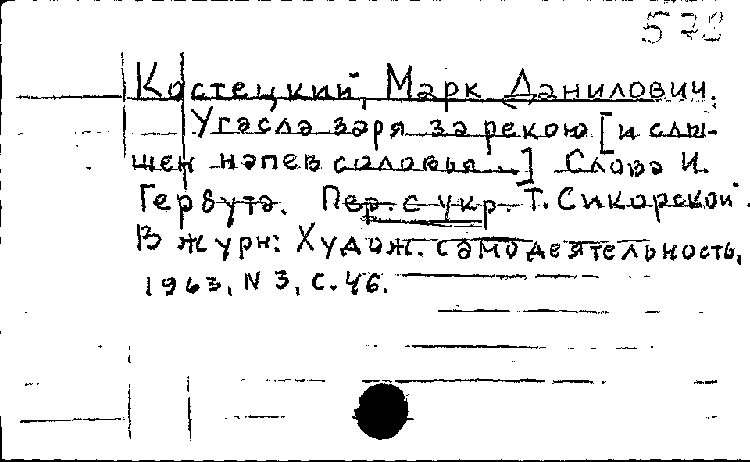 573
Костецкий, Марк Данилович.
Угасла заря за рекою [и слы-
шен напев соловья...] Слова И.
Гербута. Пер. с укр. Т. Сикорской.
В журн: Худож. самодеятельность,
1963, N 3, с. 46.